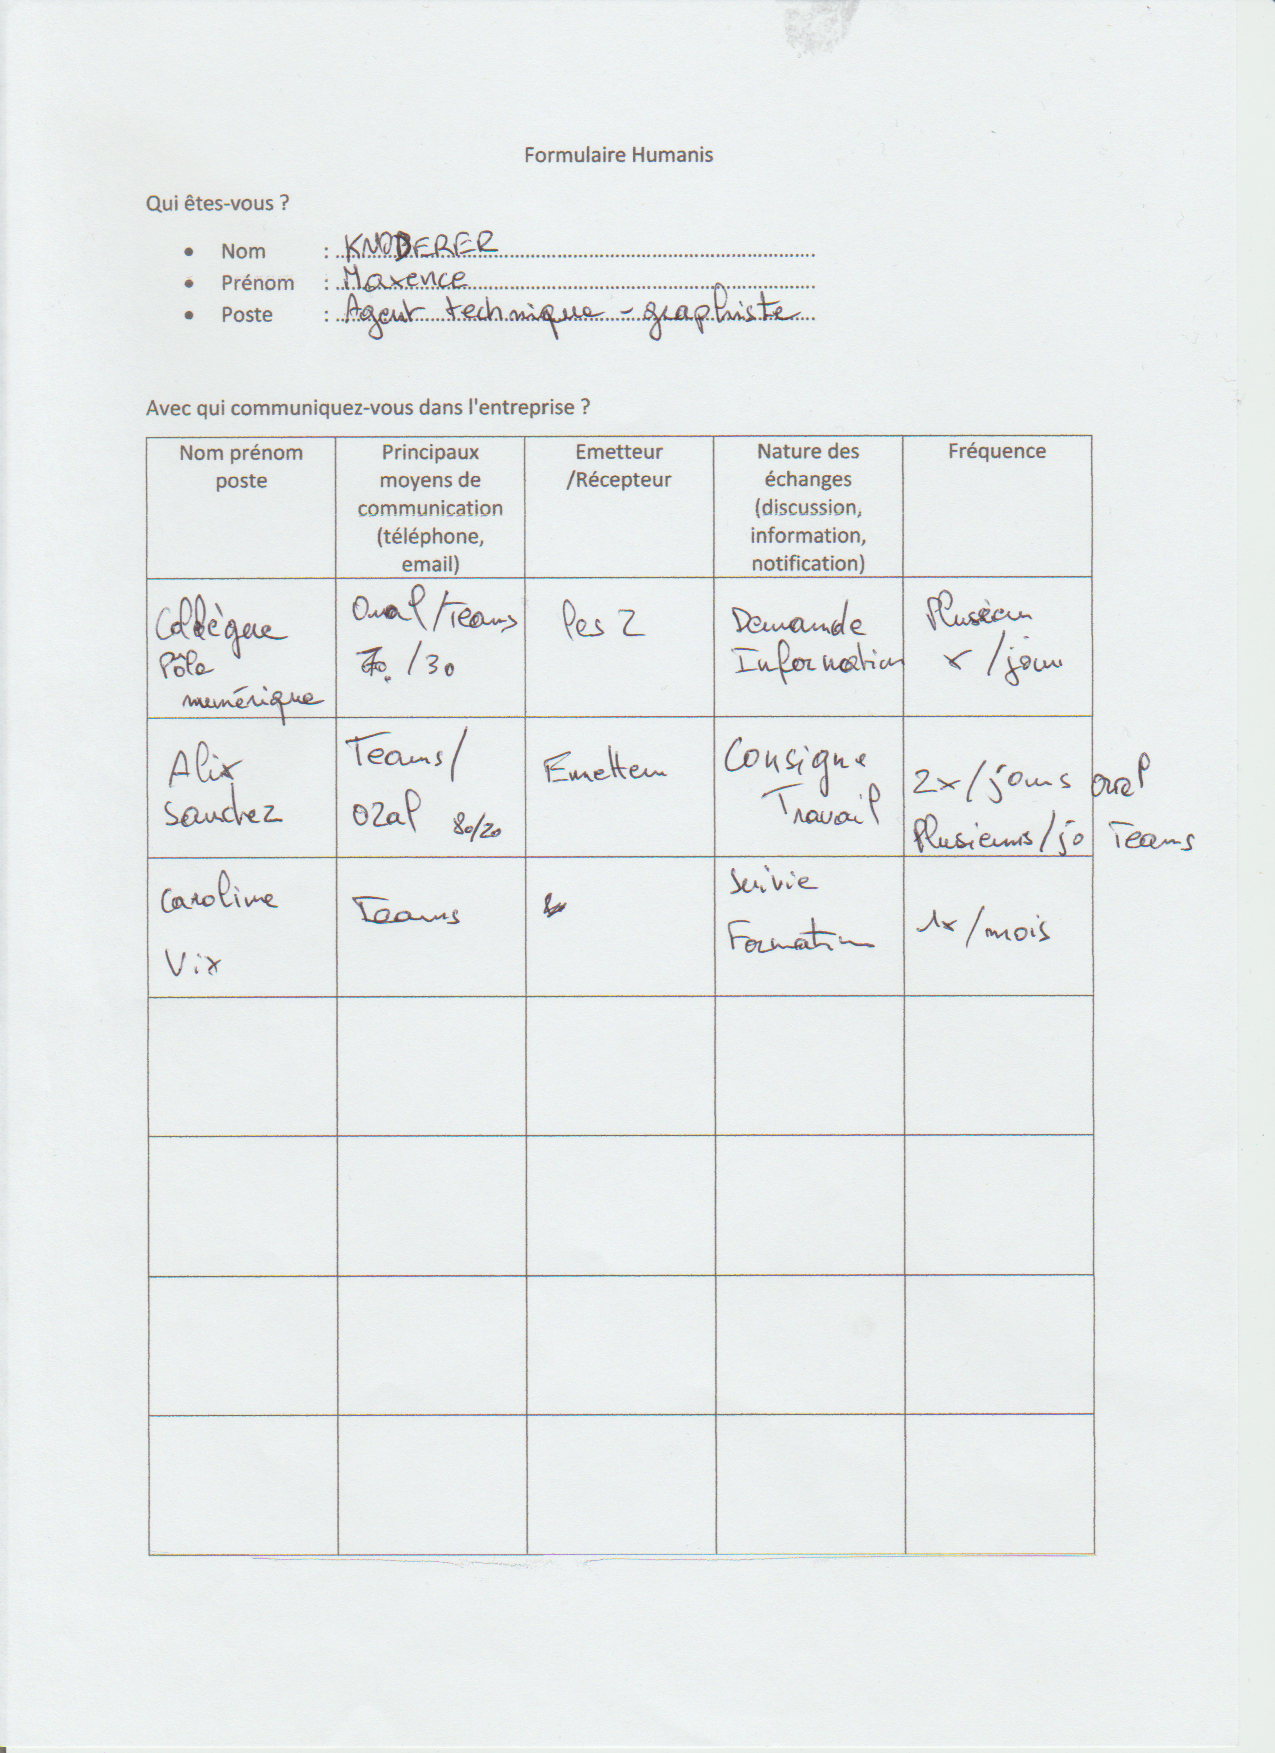 Formulaire Humanis
Qui êtes-vous ?
• Nom : KNODERER
• Prénom : Maxence
• Poste : Agent technique - graphiste
Avec qui communiquez-vous dans l'entreprise ?
Nom prénom
poste
Principaux
moyens de
communication
(téléphone,
email)
Emetteur
/Récepteur
Nature des
échanges
(discussion,
information,
notification)
Fréquence
Collègue
Pôle
numérique
Oral/Teams
70/30
les 2
Demande
Information
Plusieurs
x/jour
Alix
Sanchez
Teams/
Oral 80/20
Emetteur
Consigne
Travail
2x/jours oral
Plusieurs/jo Teams
Caroline
Vix
Teams
Suivie
Formation
1x/mois